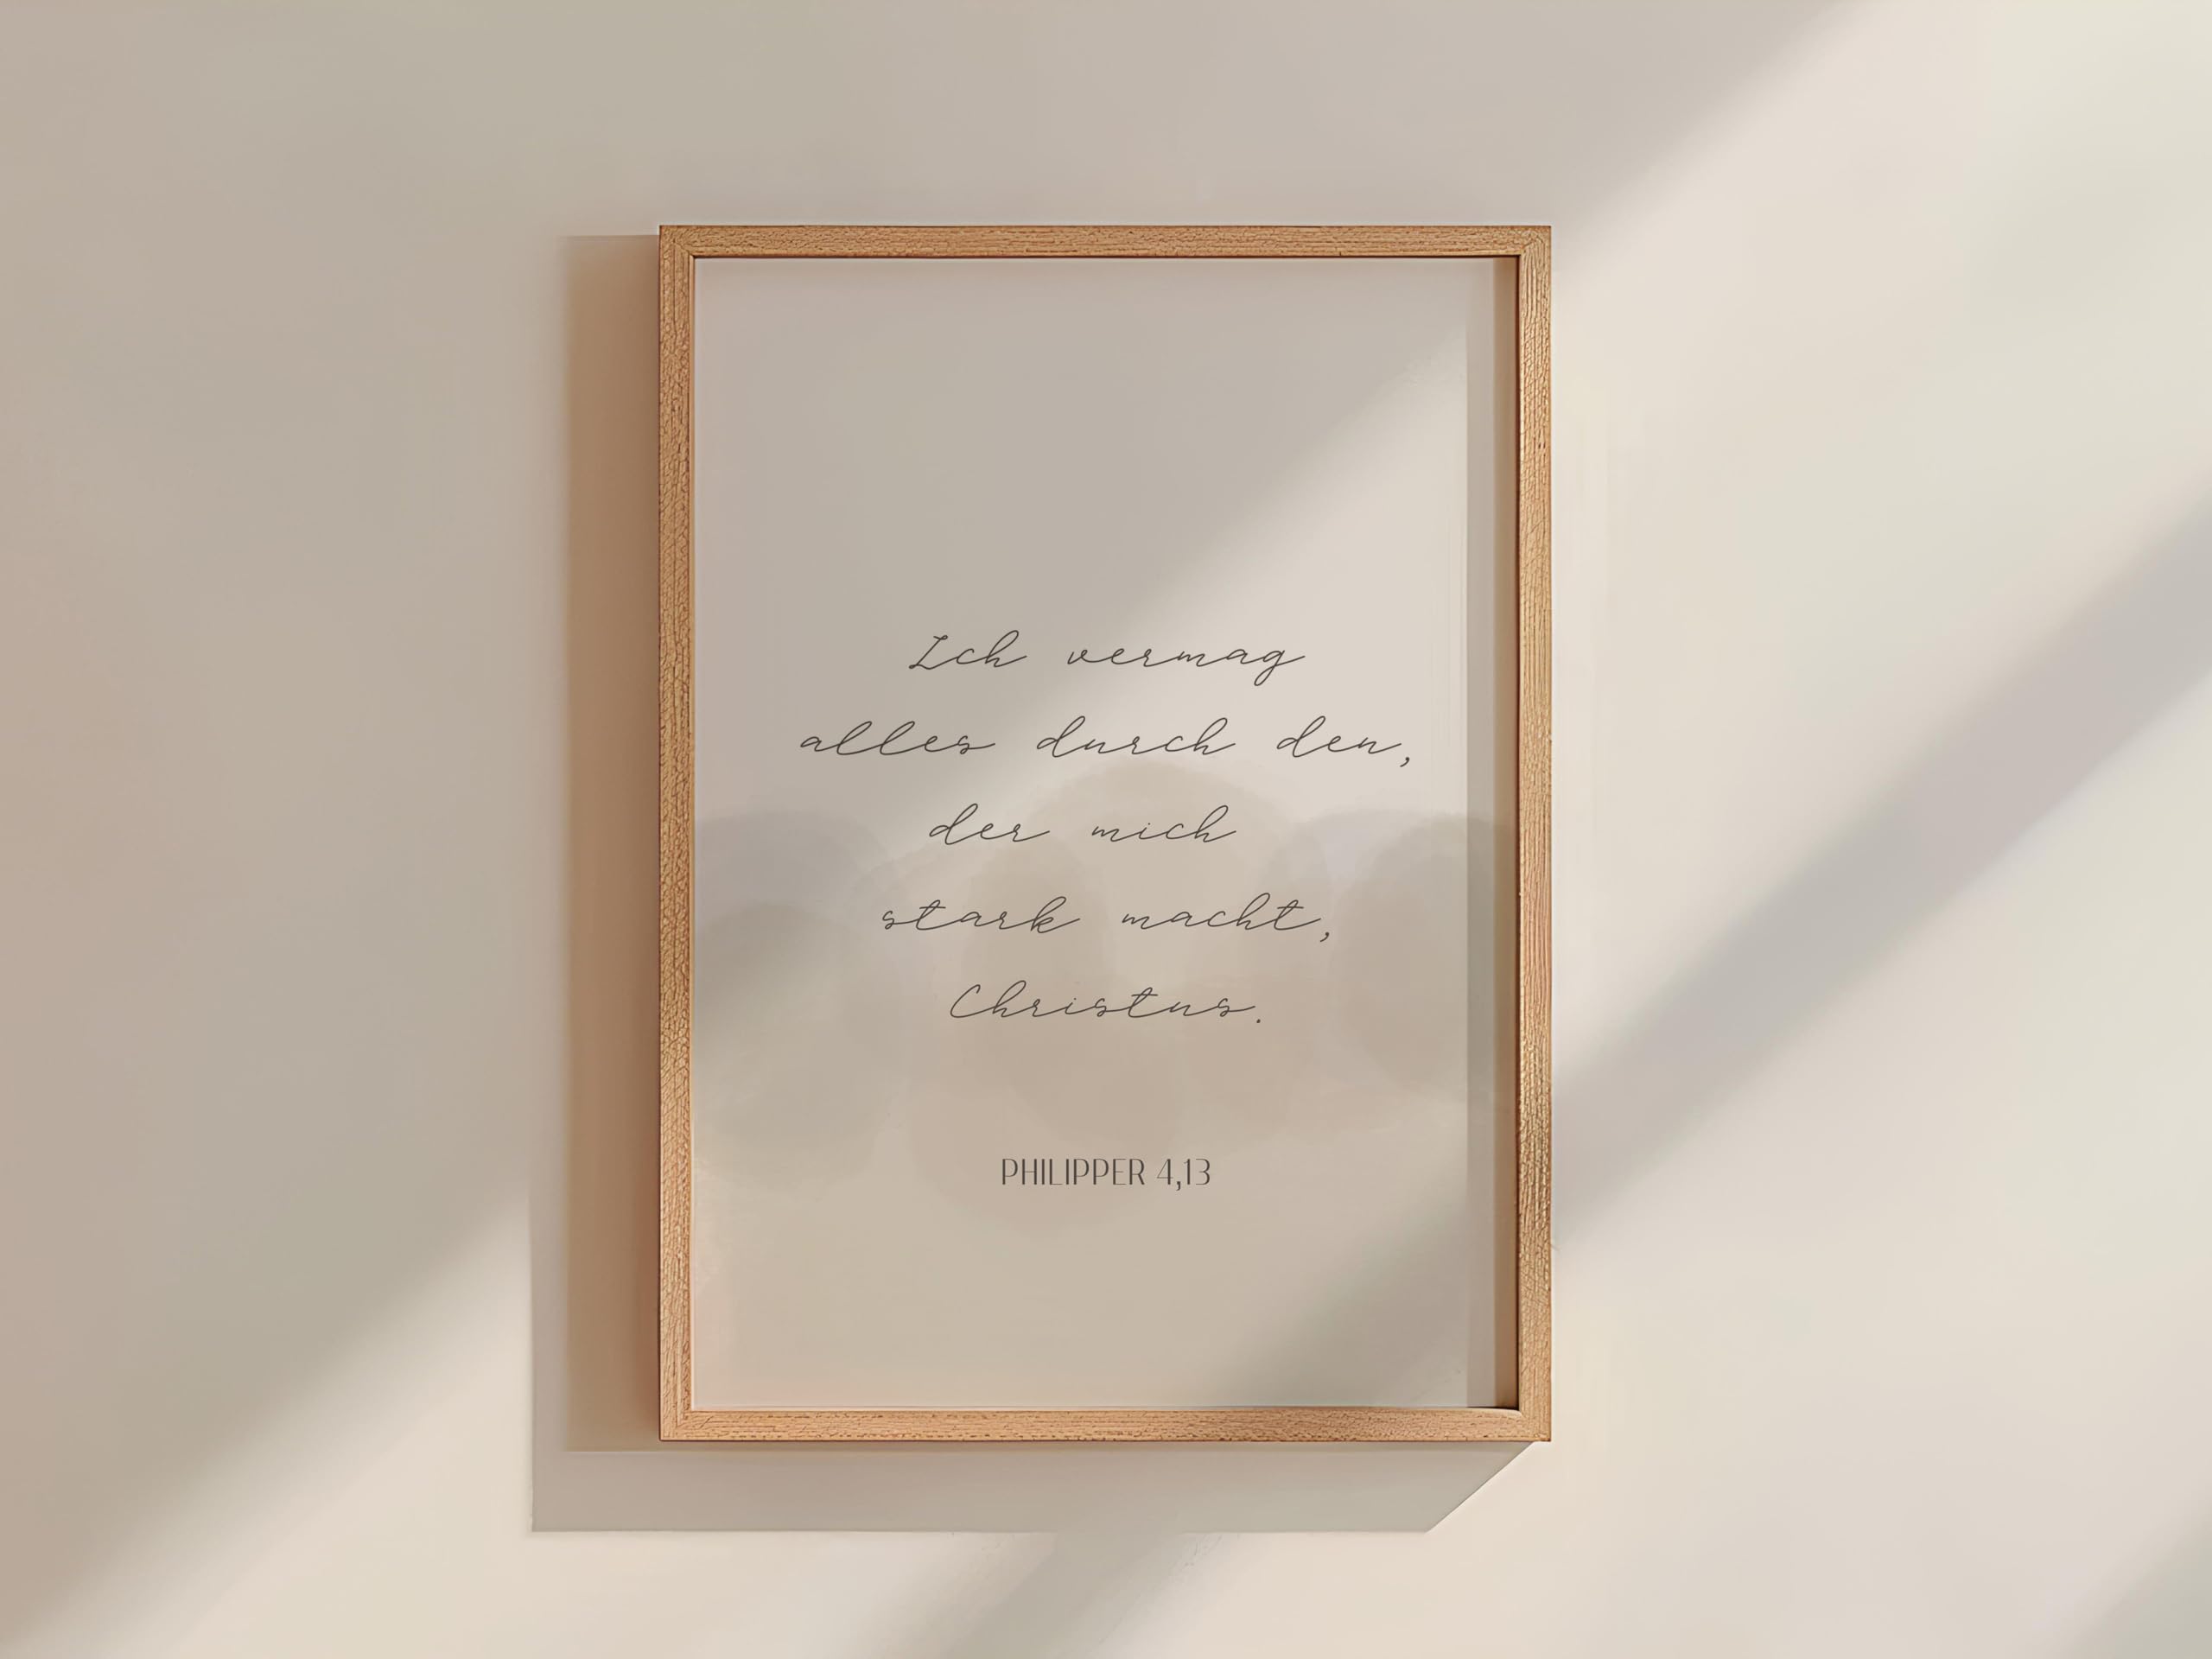 Ich vermag
alles durch den,
der mich
stark macht,
Christus.
PHILIPPER 4,13